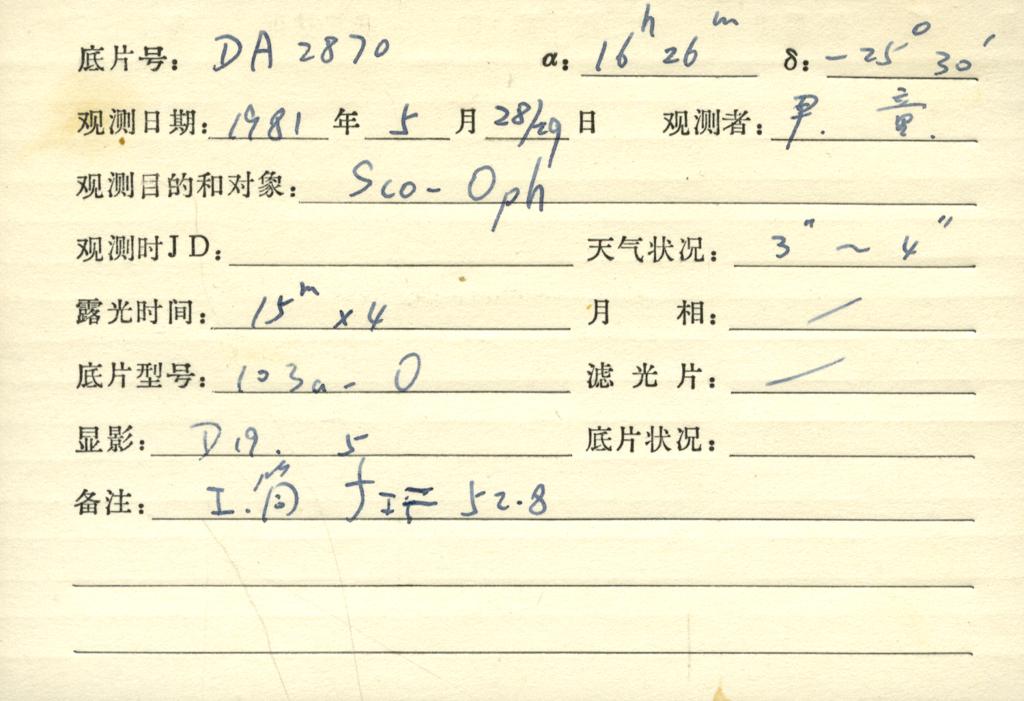 底片号: DA 2870 α: 16h 26m δ: -25° 30′
观测日期: 1981 年 5 月 28/29 日 观测者: 童.
观测目的和对象: Sco-Oph
观测时JD: 天气状况: 3″ ~ 4″
露光时间: 15m x4 月 相: /
底片型号: 103a-O 滤光片: /
显影: D19. 5 底片状况:
备注: I.筒 52.8